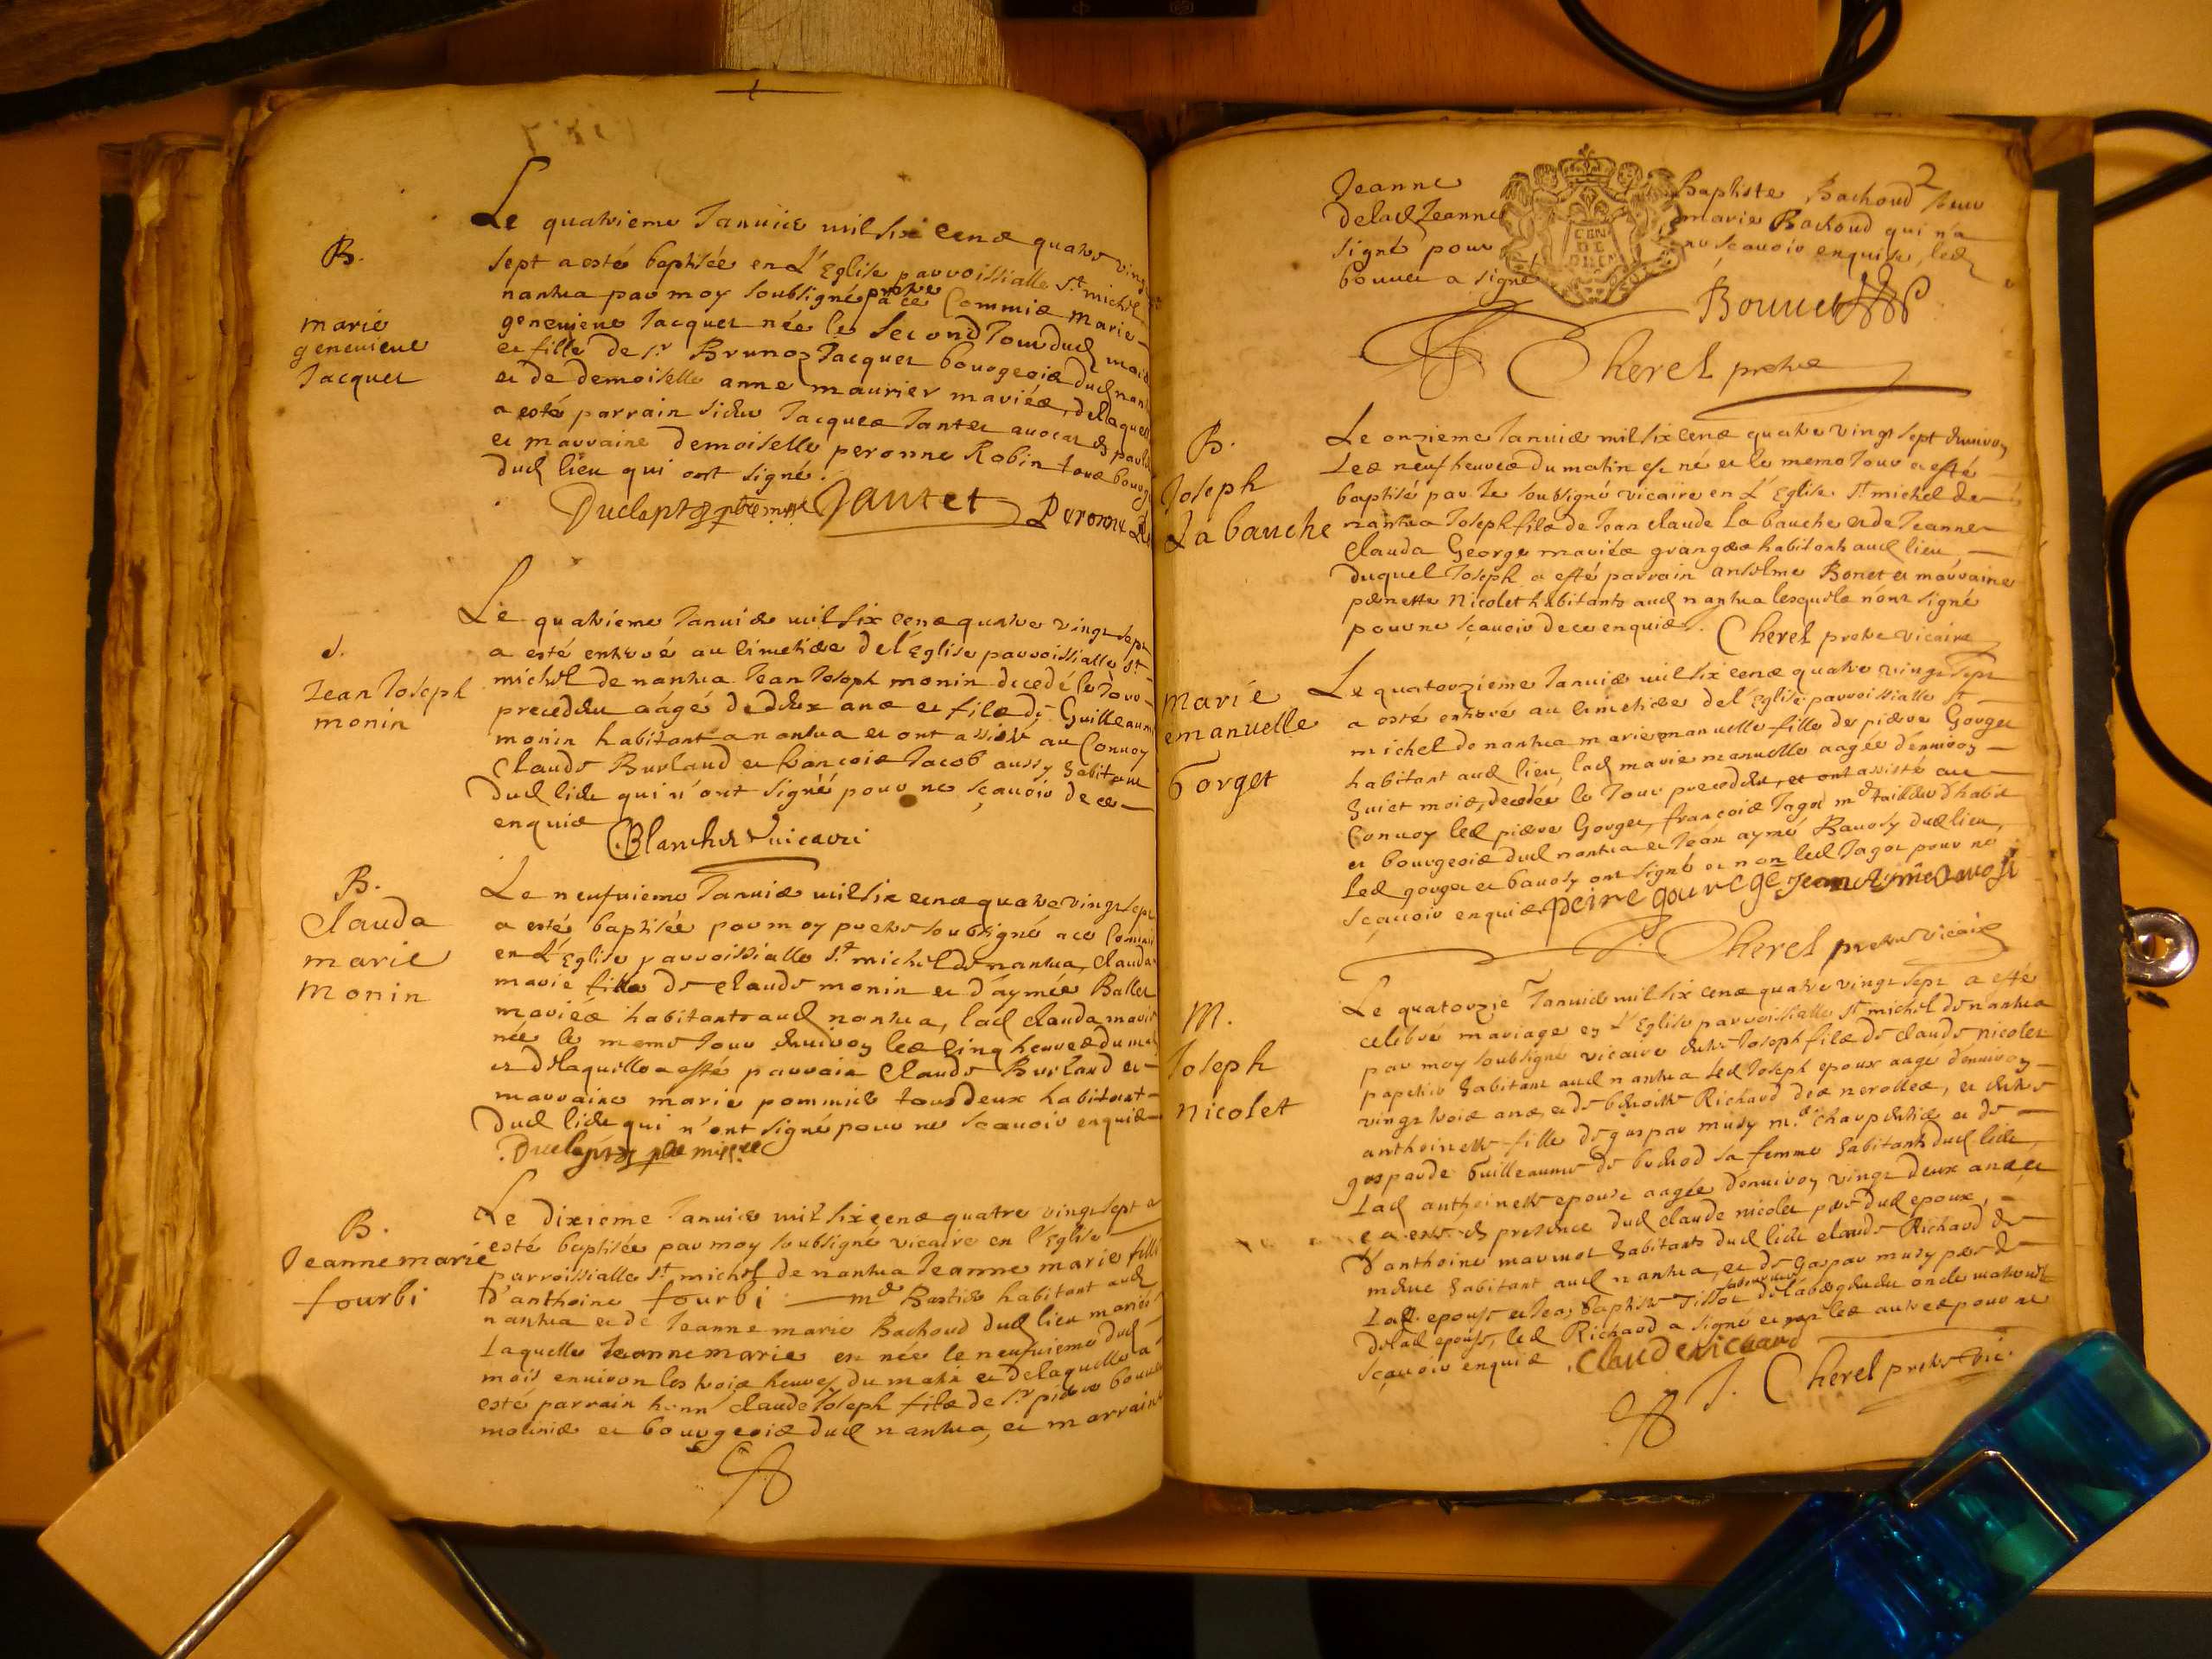 B.
marie
genevieve
Jacquet
Le quatrieme Janvier mil six cens quatre vingt
sept a esté baptisée en L'Eglise parroissialle St michel
nantua par moy soubsigné prestre a ce Commis Marie
genevieve Jacquet née le second Jour dud mois
et fille de sr Brunoz Jacquet bourgeois dud
et de demoiselle anne maurier mariés, delaquelle
a esté parrain Jacques Jantet avocat
et marraine demoiselle peronne Robin tous
dud lieu qui ont signé.
Jantet Peronne
S.
Jean Joseph
monin
Le quatrieme Janvier mil six cens quatre vingt sept
a esté enterré au cimetiere de l'Eglise parroissialle St
michel de nantua Jean Joseph monin decedé le Jour
precedent aagé de deux ans et fils de Guilleaume
monin habitant a nantua et ont assisté au Convoy
Claude Burland et francois Jacob aussy habitant
dud lieu qui n'ont signé pour ne sçavoir de ce
enquis
Blanchet vicaire
B.
Clauda
marie
Monin
Le neufvieme Janvier mil six cens quatre vingt sept
a esté baptisée par moy prestre soubsigné a ce Commis
en L'Eglise parroissialle St michel de nantua, Clauda
marie fille de claude monin et d'aymée Ballet
mariés habitants aud nantua, lad clauda marie
née le meme Jour environ les cinq heures du
et delaquelle a esté parrain Claude Burland et
marraine marie pommier tous deux habitant
dud lieu qui n'ont signé pour ne scavoir enquis
B.
Jeanne marie
fourbi
Le dixieme Janvier mil six cens quatre vingt sept a
esté baptisée par moy soubsigné vicaire en l'Eglise
parroissialle St michel de nantua Jeanne marie fille
D'anthoine fourbi md habitant aud
nantua et de Jeanne marie Bachoud dud lieu mariés
Laquelle Jeanne marie est née le neufvieme dud
mois environ les trois heures du matin et delaquelle a
esté parrain honn Claude Joseph fils de sr pierre bouvet
et bourgeois dud nantua, et marraine
2
Jeanne Baptiste Bachoud
delad Jeanne marie Bachoud qui n'a
signé pour ne sçavoir enquise, led
bouvet a signé
Bouvet
Cheret prestre
B.
Joseph
La bauche
Le onzieme Janvier mil six cens quatre vingt sept environ
Les neuf heures du matin est né et le meme Jour a esté
baptisé par Le soubsigné vicaire en L'Eglise St michel de
nantua Joseph fils de Jean claude La bauche et de Jeanne
Clauda George mariés habitant aud lieu
duquel Joseph a esté parrain anselme Bonet et marraine
pernette Nicolet habitants aud nantua lesquels n'ont signé
pour ne sçavoir de ce enquis. Cheret prestre vicaire
Marie
emanuelle
Gorget
Le quatorzieme Janvier mil six cens quatre vingt sept
a esté enterré au cimetiere de l'Eglise parroissialle St
michel de nantua marie emanuelle fille de pierre Gorget
habitant aud lieu, lad marie emanuelle aagée d'environ
huict mois, decedée le Jour precedent, et ont assisté au
Convoy led pierre Gorget, francois Jagot md tailleur d'habit
et bourgeois dud nantua et Jean aymé Bavosy dud lieu,
Led gorget et bavosy ont signé et non led Jagot pour ne
sçavoir enquis
Cheret prestre vicaire
M.
Joseph
nicolet
Le quatorzie Janvier mil six cens quatre vingt sept a esté
celebré mariage en L'Eglise parroissialle St michel de nantua
par moy soubsigné vicaire entre Joseph fils de claude nicolet
papetier habitant aud nantua led Joseph epoux aagé d'environ
vingt trois ans, et de benoitte Richard, et entre
anthoinette fille de gaspar musy md charpentier et de
gasparde Guilleaume de sa femme habitants dud lieu
Lad anthoinette epouse aagée d'environ vingt deux ans, et
ce a esté en presence dud claude nicolet pere dud epoux,
D'anthoine marmot habitants dud lieu claude Richard
habitant aud nantua, et de Gaspar musy pere de
Lad epouse et Jean baptiste Tissot
delad epouse, led Richard a signé et non les autres pour ne
sçavoir enquis. Claude richard
J. Cheret prestre vic.